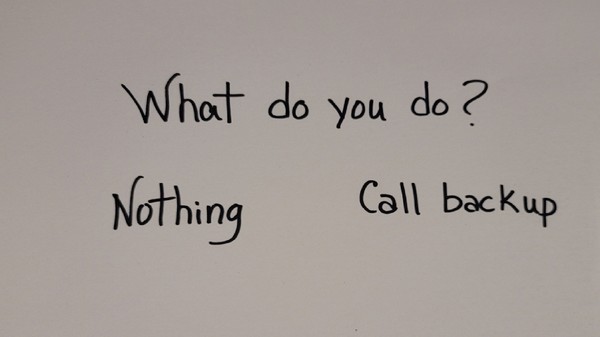 What do you do?
Nothing Call backup